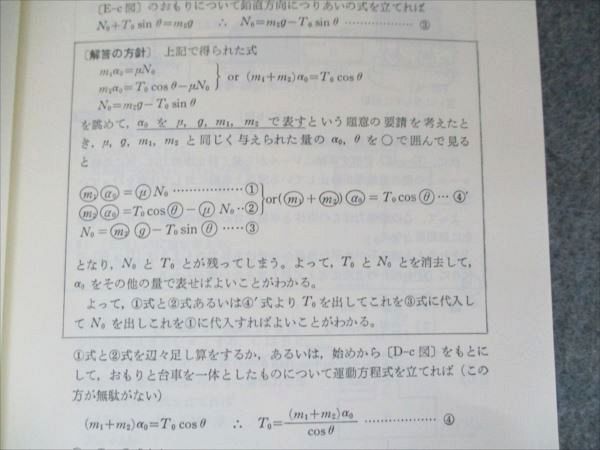 〔E-c 図〕のおもりについて鉛直方向につりあいの式を立てれば
N₀+T₀ sin θ=m₂g ∴ N₀=m₂g−T₀ sin θ ……………… ③
〔解答の方針〕 上記で得られた式
m₁α₀=μN₀
m₂α₀=T₀ cos θ−μN₀ } or (m₁+m₂)α₀=T₀ cos θ
N₀=m₂g−T₀ sin θ
を眺めて,α₀ を μ, g, m₁, m₂ で表すという題意の要請を考えたと
き,μ, g, m₁, m₂ と同じく与えられた量の α₀, θ を ○ で囲んで見る
と
m₁ α₀ = μ N₀ ……………… ①
m₂ α₀ =T₀ cos θ − μ N₀ ‥② } or( m₁ + m₂ ) α₀ = T₀ cos θ … ④′
N₀= m₂ g −T₀ sin θ ……③
となり,N₀ と T₀ とが残ってしまう。よって,T₀ と N₀ とを消去して,
α₀ をその他の量で表せばよいことがわかる。
よって,①式と②式あるいは④′式より T₀ を出してこれを③式に代入し
て N₀ を出しこれを①に代入すればよいことがわかる。
①式と②式を辺々足し算をするか,あるいは,始めから〔D-c 図〕をもとに
して,おもりと台車を一体としたものについて運動方程式を立てれば(この
方が無駄がない)
(m₁+m₂)α₀=T₀ cos θ ∴ T₀=(m₁+m₂)α₀/cos θ ……………… ④